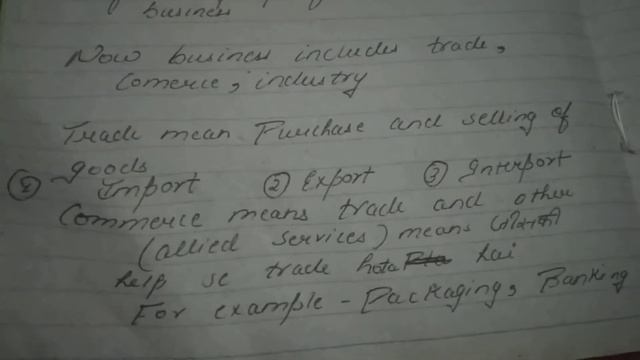 business
Now business includes trade,
Comerce, industry
Trade mean Purchase and selling of
goods
① Import ② Export ③ Interport
Commerce means trade and other
(allied services) means जिसकी
help se trade hota hai
For example - Packaging, Banking